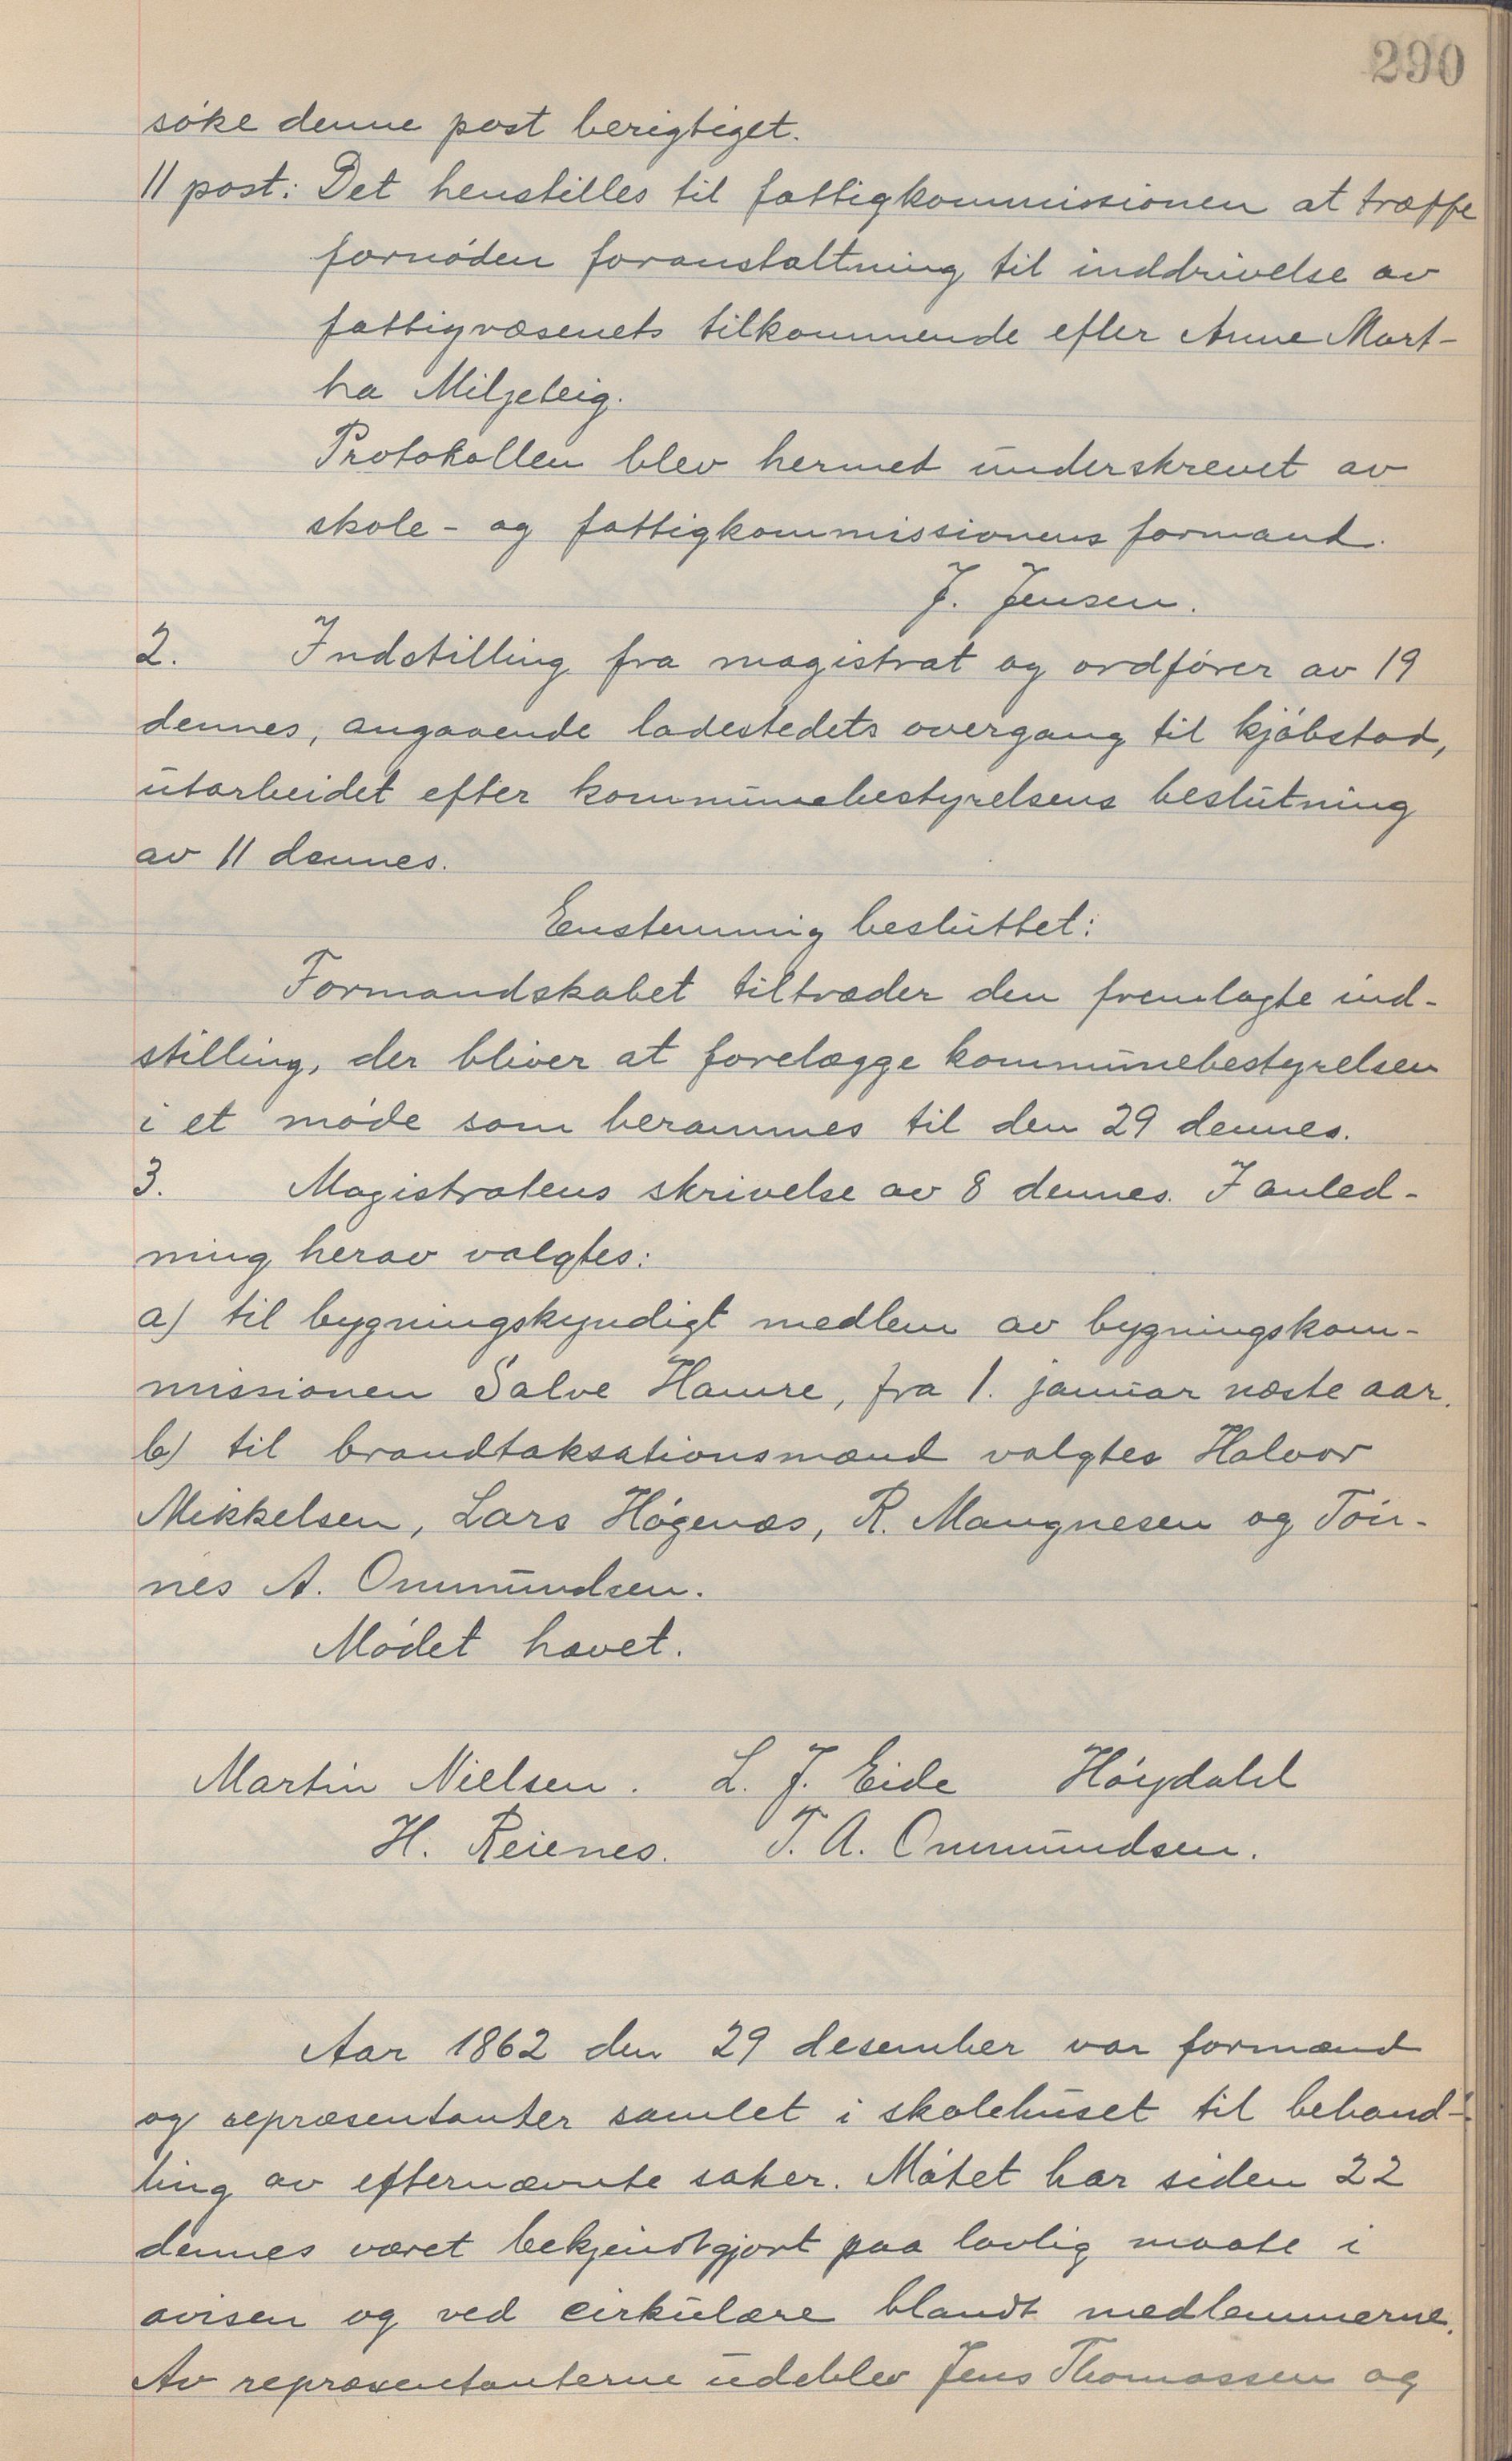 290
søke denne post berigtiget.
11 post: Det henstilles til fattigkommissionen at træffe
fornøden foranstaltning til inddrivelse av
fattigvæsenets tilkommende efter Anne Mart-
ha Miljeteig.
Protokollen blev hermed underskrevet av
skole- og fattigkommissionens formand.
J. Jensen.
2. Indstilling fra magistrat og ordfører av 19
dennes, angaaende ladestedets overgang til kjøbstad,
utarbeidet efter kommunebestyrelsens beslutning
av 11 dennes.
Enstemmig besluttet:
Formandskabet tiltræder den fremlagte ind-
stilling, der bliver at forelægge kommunebestyrelsen
i et møde som berammes til den 29 dennes.
3. Magistratens skrivelse av 8 dennes. I anled-
ning herav valgtes:
a) til bygningskyndigt medlem av bygningskom-
missionen Salve Hamre, fra 1. januar næste aar.
b) til brandtaksationsmænd valgtes Halvor
Mikkelsen, Lars Høgenæs, R. Mangnesen og Tön-
nes A. Ommundsen.
Mødet hævet.
Martin Nielsen. L. J. Eide Høydahl
H. Reienes. T. A. Ommundsen.
Aar 1862 den 29 desember var formænd
og repræsentanter samlet i skolehuset til behand-
ling av efternævnte saker. Møtet har siden 22
dennes været bekjendtgjort paa lovlig maate i
avisen og ved cirkulære blandt medlemmerne.
Av repræsentanterne udeblev Jens Thomassen og